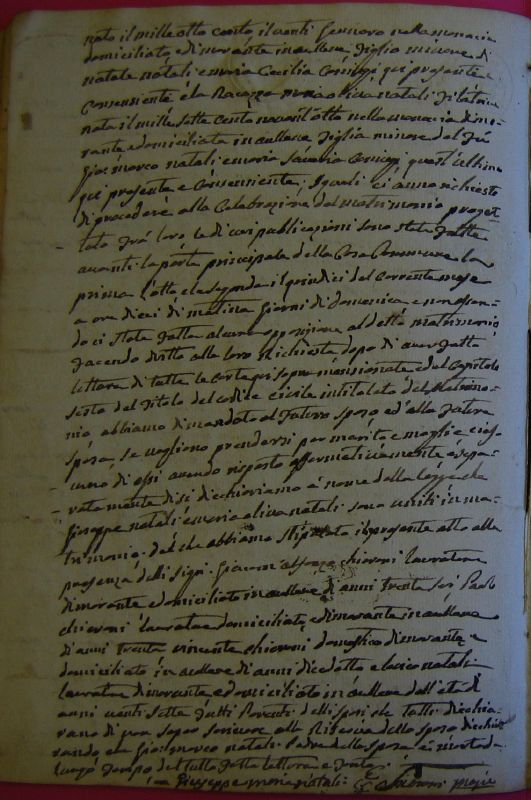 nato il mille otto cento, il venti Gennaro nella
domiciliato, e dimorante in aullene figlio minore di
natale natali e maria Cecilia qui presente e
Consenziente, e la Ragazza maria oliva natali filatrice
nata il mille sette cento novant'otto nella dimo-
rante e domiciliata in aullene figlia minore del fù
Gio: marco natali e maria Saveria quest'ultima
qui presente e Consenziente; I quali ci anno richiesto
di procedere alla Celebrazione del matrimonio proget-
tato frà loro le di cui publicazioni sono state fatte
avanti la porta principale della Casa Commune la
prima l'otto e la segonda il quindici del Corrente mese
a ore dieci di matina Giorni di domenica e non essen-
do ci stata fatta alcuna opposizione al detto matrimonio
facendo dritto alla loro Richiesta dopo di aver fatta
lettura di tutte le Carte qui sopra mensionate ed al Capitolo
sesto del Titolo del codice civile intitolato del Matrimo-
nio, abbiamo dimandato al futuro sposo ed alla futura
sposa, se vogliono prendersi per marito e moglie e cias-
cuno di essi avendo risposto affermativamente e sepa-
ratamente di si dicchiariamo a nome della legge che
Gioseppe natali e maria oliva natali sono uniti in ma-
trimonio. del che abbiamo stipolato il presente atto alla
presenza delli Sigri. chiaroni lavoratore
dimorante e domiciliato in aullene di anni trenta sei Paolo
chiaroni lavoratore domiciliato, e dimorante in aullene
di anni trenta vincente chiaroni domestico dimorante e
domiciliato in aullene di anni dieciotto e natali
lavoratore dimorante e domiciliato in aullene dell'età di
anni venti sette tutti Parenti delli sposi che tutti dicchia-
rano di non saper scrivere alla Riserva dello sposo dicchia-
rando che Gio: marco natali Padre della sposa è morto da
luogo tempo del tutto fatta lettura e
Giuseppe maria natali